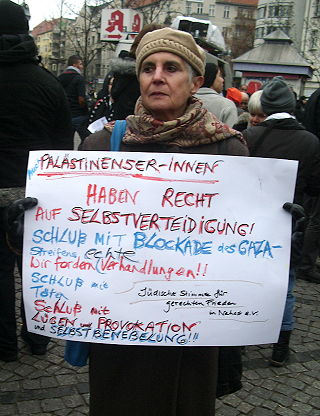 Auch PALÄSTINENSER-INNEN
HABEN RECHT
AUF SELBSTVERTEIDIGUNG!
SCHLUß MIT BLOCKADE des GAZA-
Streifens, echte
Wir fordern (Verhandlungen!!
SCHLUß MIT
Töten
Jüdische Stimme für
gerechten Frieden
in Nahost e.V.
SCHLUß MIT
LÜGEN und PROVOKATION
und SELBSTBENEBELUNG!!!